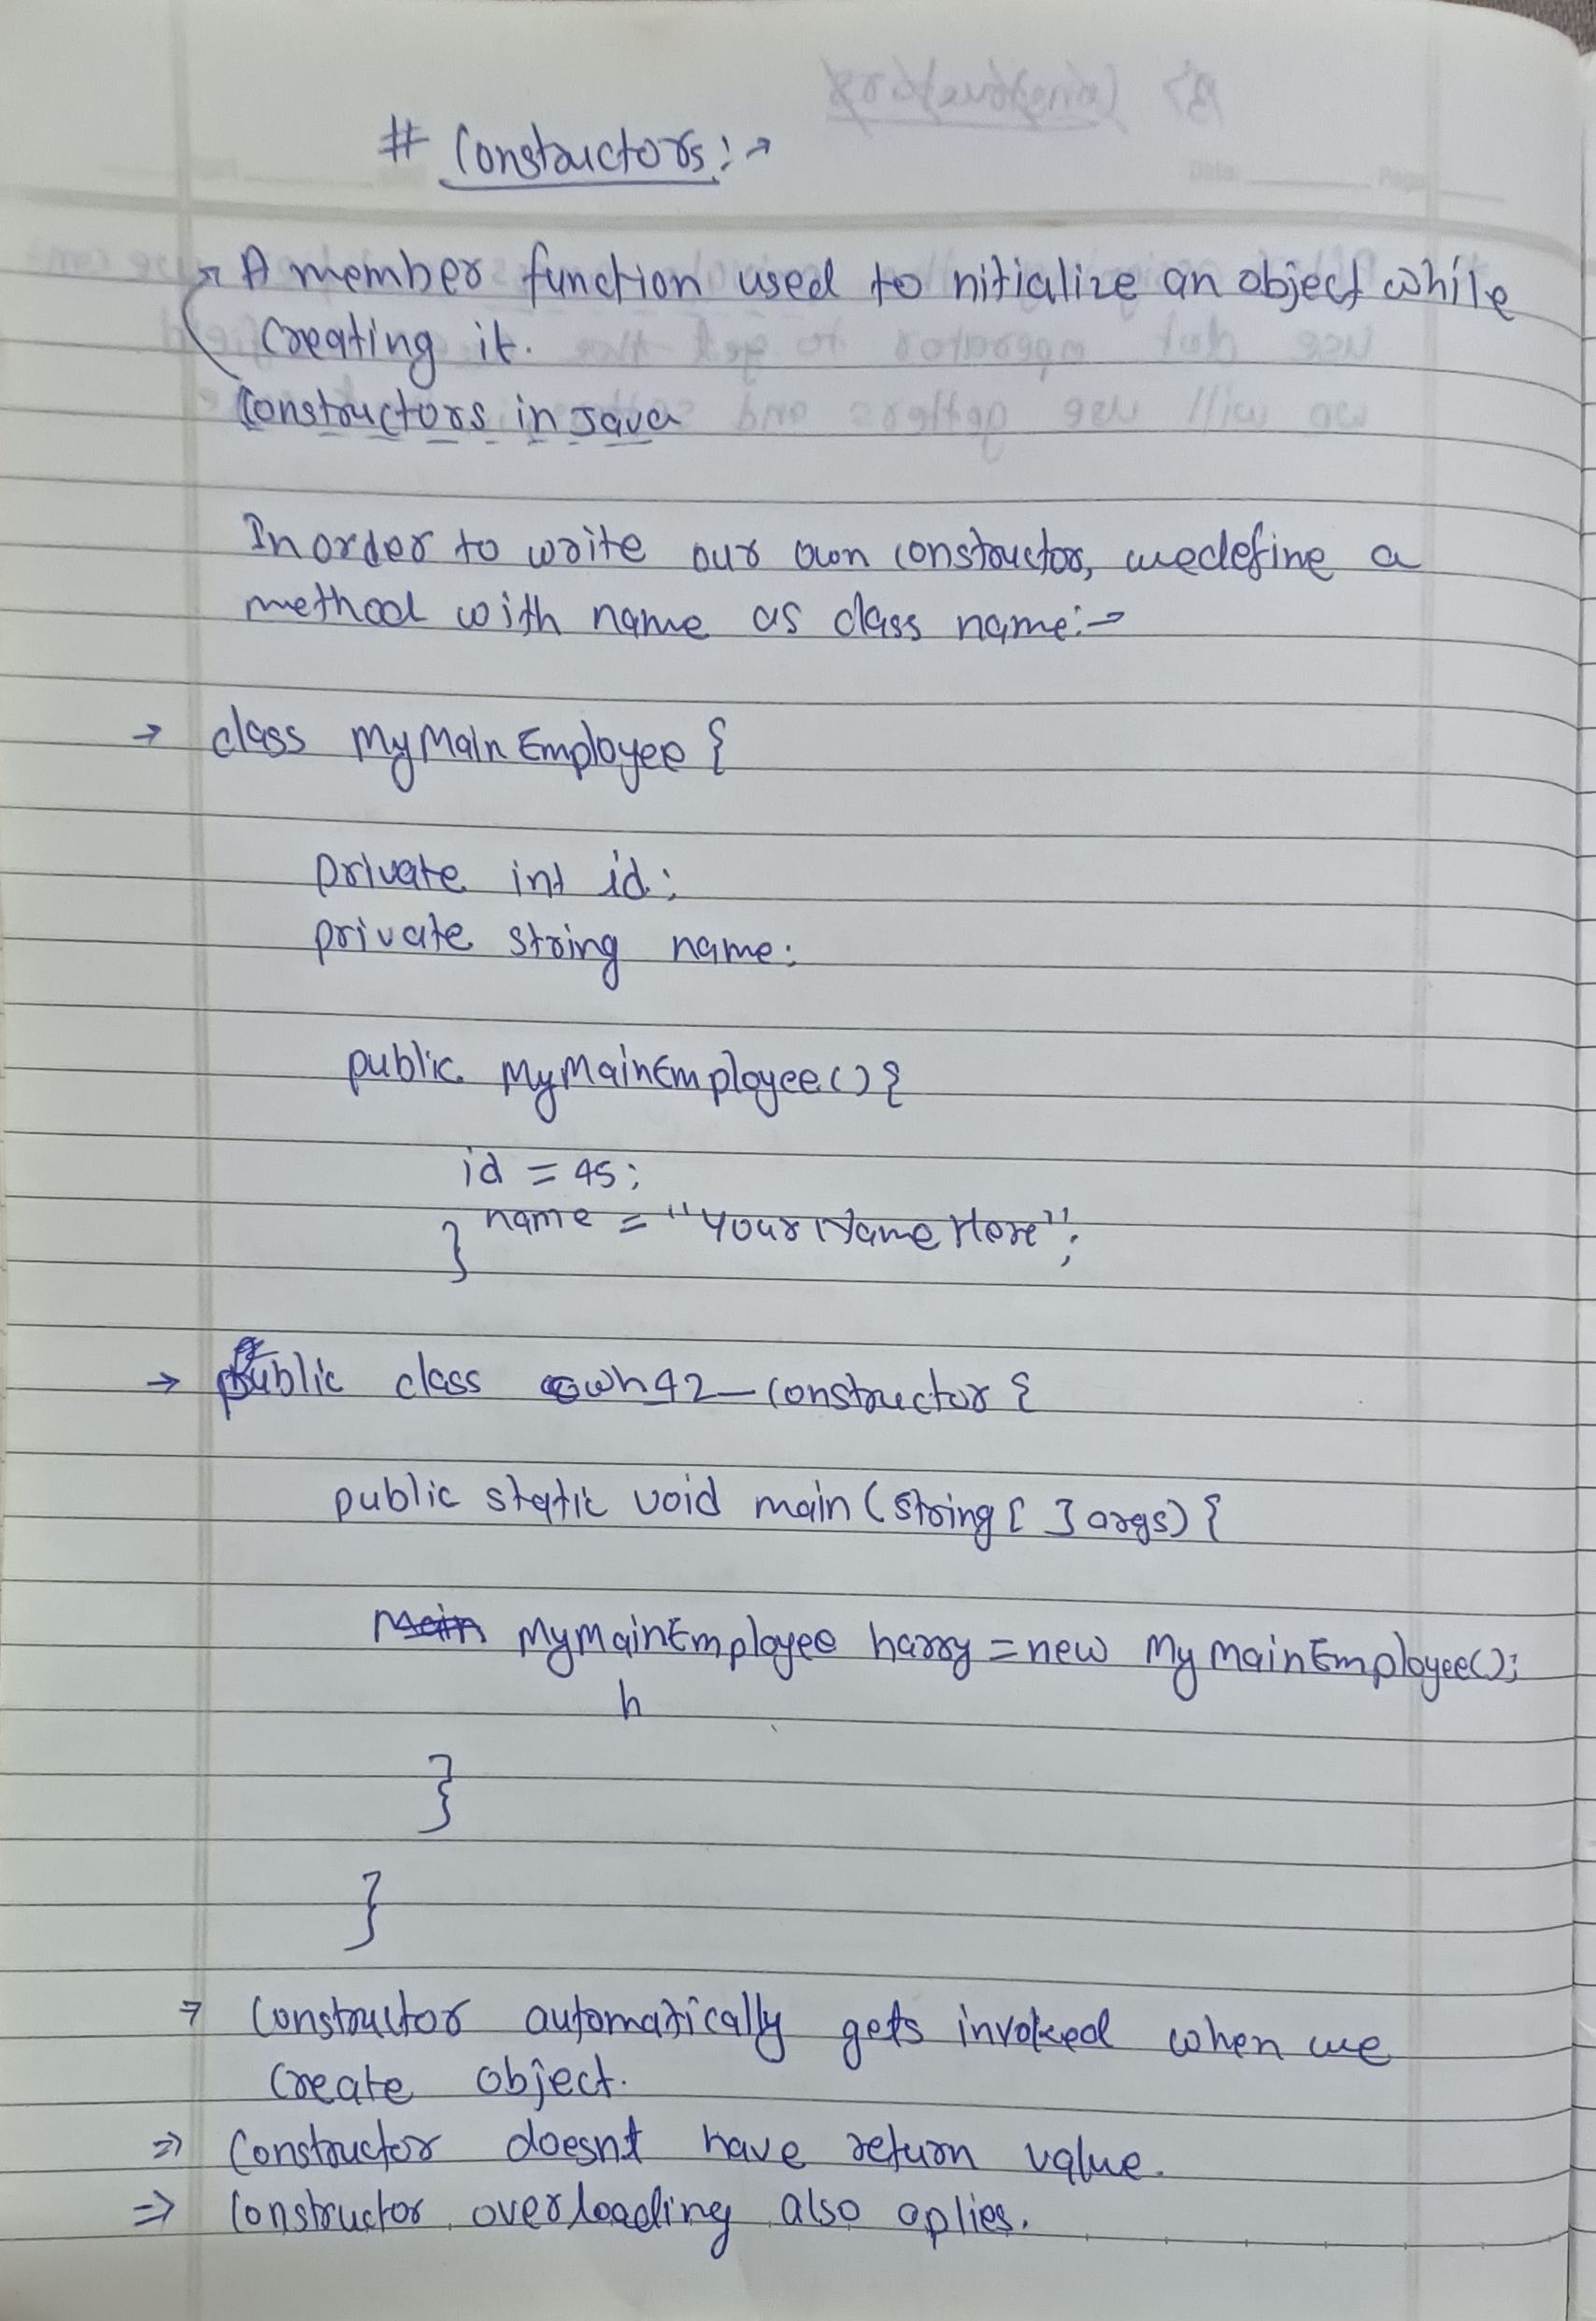 # Constructors:→
→ A member function used to nitialize an object while
creating it.
Constructors in Java
In order to write our own constructor, we define a
method with name as class name:→
→ class MyMainEmployee {
private int id;
private string name;
public MyMainEmployee() {
id = 45;
name = "YourNameHere";
}
→ public class cwh42_constructor {
public static void main (string [ ] args) {
Main MyMainEmployee harry = new MyMainEmployee();
h
}
}
→ Constructor automatically gets invoked when we
create object.
⇒ Constructor doesnt have return value.
⇒ Constructor overloading also aplies.